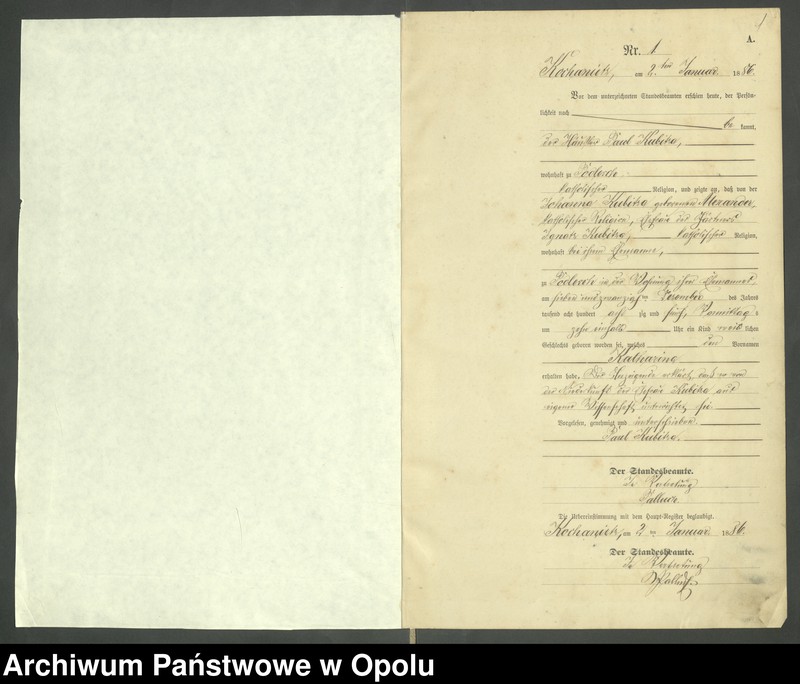 1
A.
Nr. 1
Kochanietz, am 2. ten Januar 1886.
Vor dem unterzeichneten Standesbeamten erschien heute, der Persön-
lichkeit nach
be kannt,
der Häusler Paul Kubitza,
wohnhaft zu
katholischer Religion, und zeigte an, daß von der
Johanna Kubitza geborenen Alexander,
katholischer Religion, Ehefrau des Gärtners
Ignatz Kubitza, katholischer Religion,
wohnhaft bei ihrem Ehemanne,
zu in der Wohnung ihres Ehemannes
am sieben und zwanzigsten Dezember des Jahres
tausend acht hundert acht zig und fünf, Vormittag s
um zehn einhalb Uhr ein Kind weib lichen
Geschlechts geboren worden sei, welches den Vornamen
Katharina
erhalten habe. Der Anzeigende erklärt, daß er von
der Niederkunft der Ehefrau Kubitza aus
eigener Wissenschaft unterrichtet sei.
Vorgelesen, genehmigt und unterschrieben.
Paul Kubitza.
Der Standesbeamte.
In Vertretung
Die Uebereinstimmung mit dem Haupt-Register beglaubigt.
Kochanietz, am 2 ten Januar 1886.
Der Standesbeamte.
In Vertretung
Archiwum Państwowe w Opolu